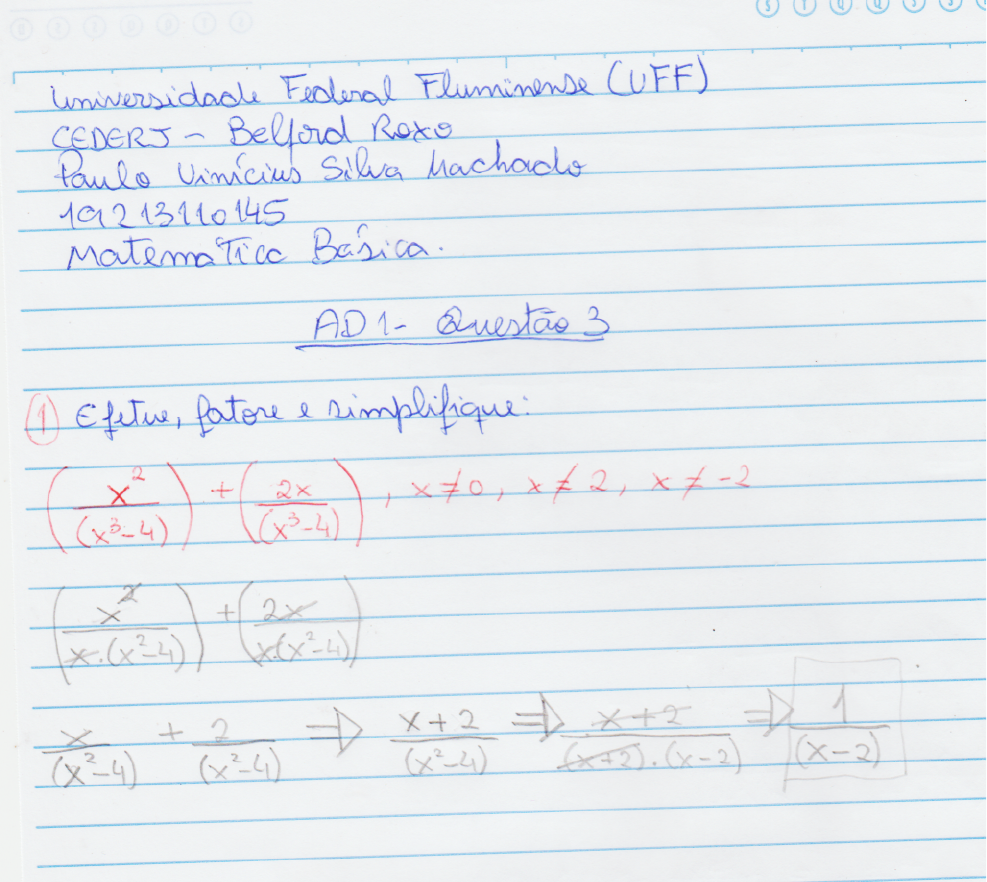 Universidade Federal Fluminense (UFF)
CEDERJ - Belford Roxo
Paulo Vinícius Silva Machado
19213110145
Matemática Básica.
AD1- Questão 3
① Efetue, fatore e simplifique:
(x²/(x³-4)) + (2x/(x³-4)), x≠0, x≠2, x≠-2
(x²/x.(x²-4)) + (2x/x(x²-4))
x/(x²-4) + 2/(x²-4) ⇒ x+2/(x²-4) ⇒ x+2/(x+2).(x-2) ⇒ 1/(x-2)